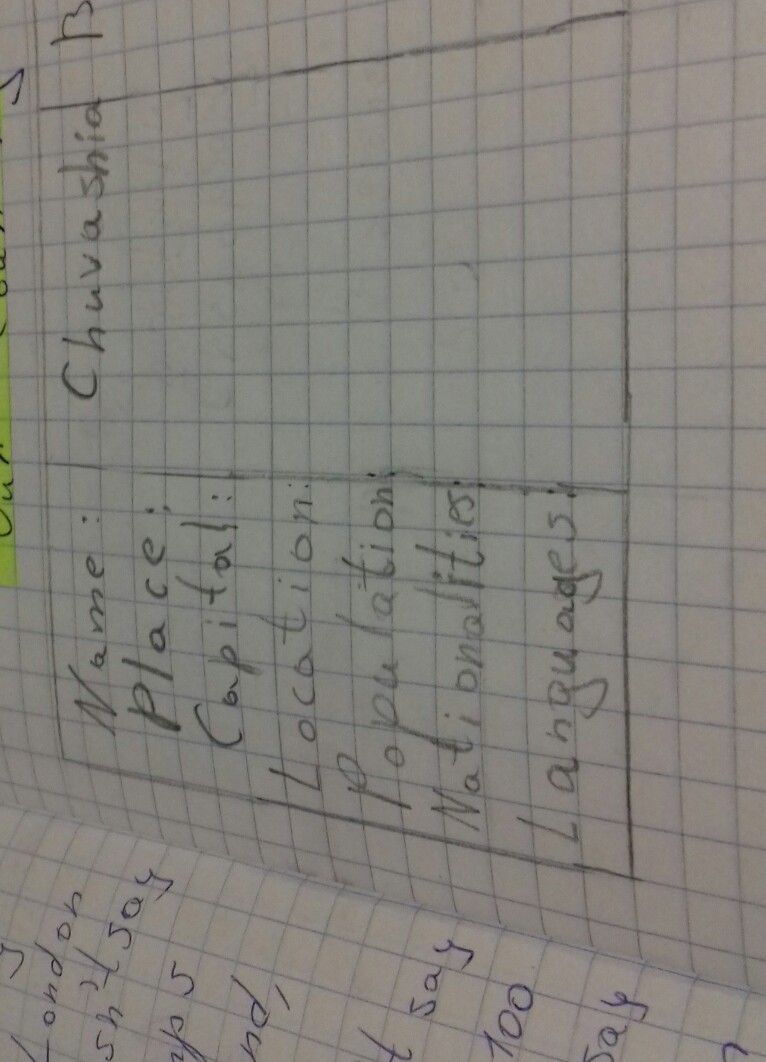 Name: Chuvashia
Place:
Capital:
Location:
Population:
Nationalities:
Languages:
London
say
say
100
say